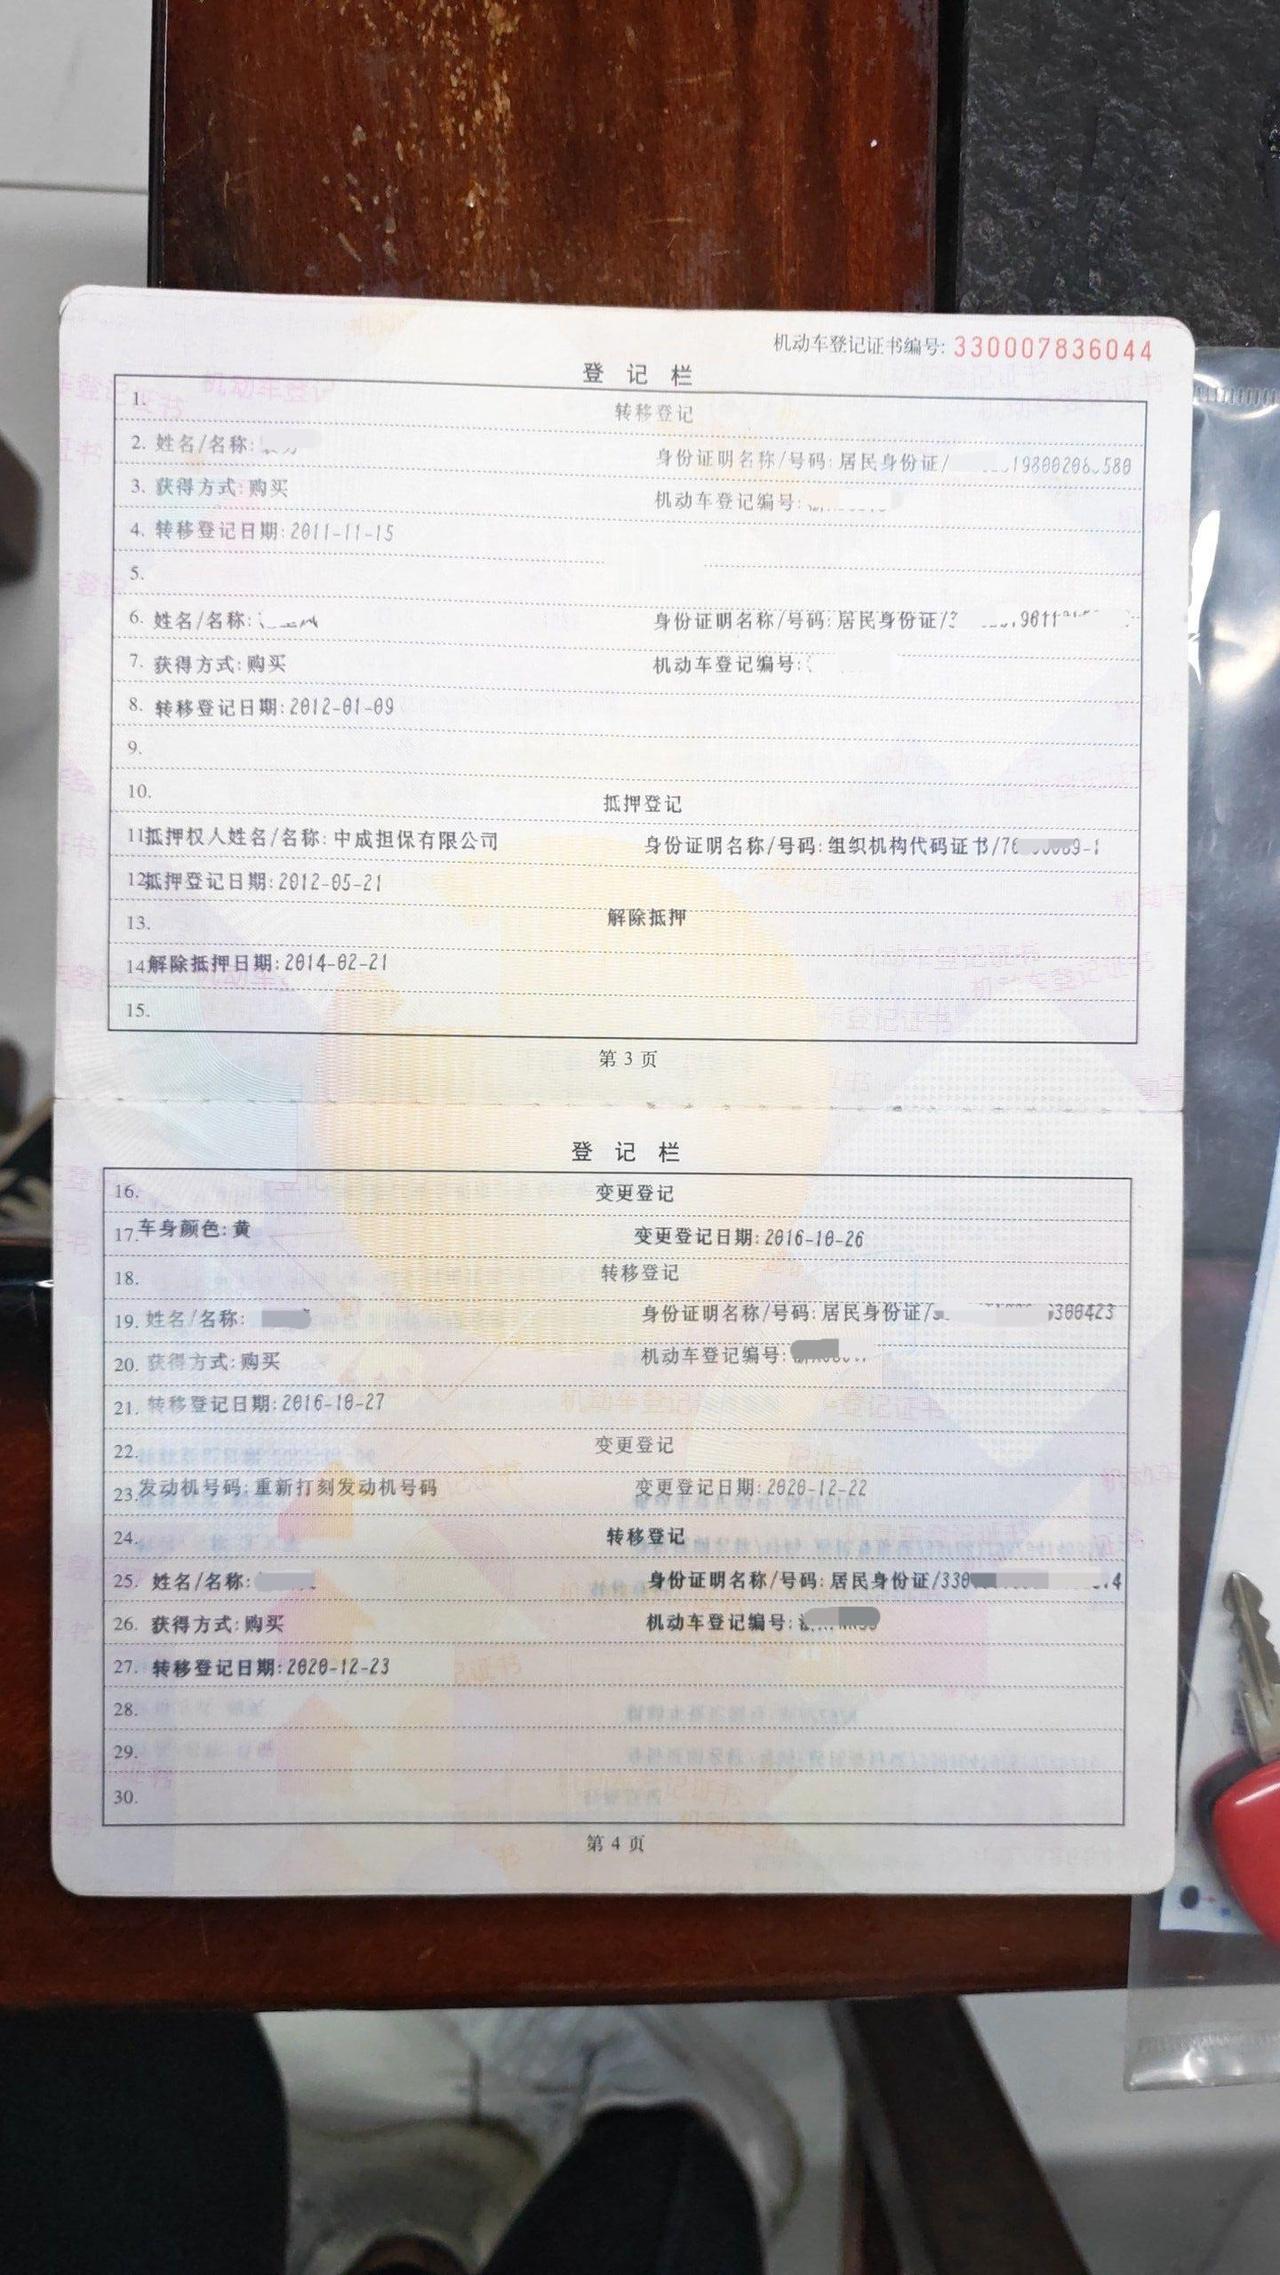 机动车登记证书编号: 330007836044
登 记 栏
1. 转移登记
2. 姓名/名称: 身份证明名称/号码: 居民身份证/
3. 获得方式: 购买 机动车登记编号:
4. 转移登记日期: 2011-11-15
5.
6. 姓名/名称: 身份证明名称/号码: 居民身份证/3
7. 获得方式: 购买 机动车登记编号:
8. 转移登记日期: 2012-01-09
9.
10. 抵押登记
11. 抵押权人姓名/名称: 中成担保有限公司 身份证明名称/号码: 组织机构代码证书/76 9-1
12. 抵押登记日期: 2012-05-21
13. 解除抵押
14. 解除抵押日期: 2014-02-21
15.
第 3 页
登 记 栏
16. 变更登记
17. 车身颜色: 黄 变更登记日期: 2016-10-26
18. 转移登记
19. 姓名/名称: 身份证明名称/号码: 居民身份证/3 300423
20. 获得方式: 购买 机动车登记编号:
21. 转移登记日期: 2016-10-27
22. 变更登记
23. 发动机号码: 重新打刻发动机号码 变更登记日期: 2020-12-22
24. 转移登记
25. 姓名/名称: 身份证明名称/号码: 居民身份证/330 4
26. 获得方式: 购买 机动车登记编号:
27. 转移登记日期: 2020-12-23
28.
29.
30.
第 4 页